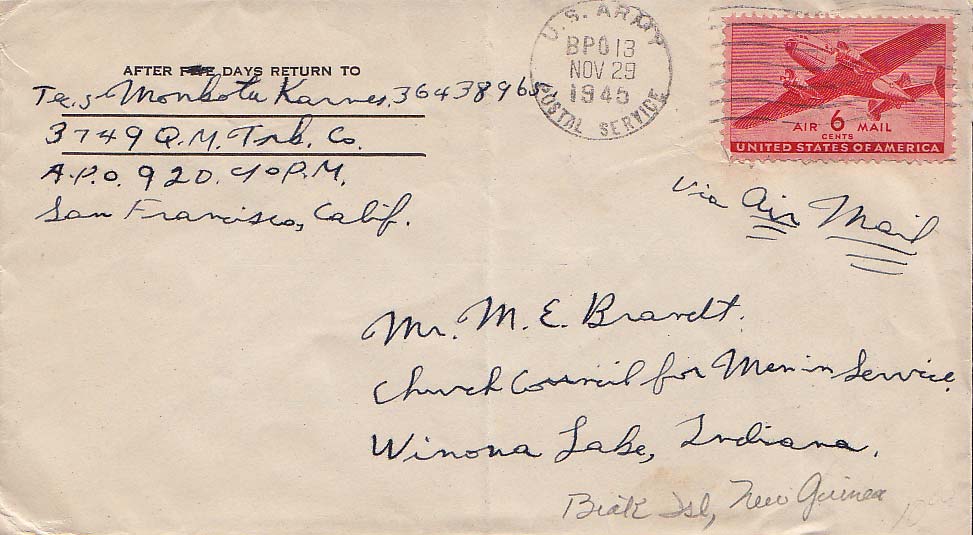 U.S. ARMY
BPO 13
NOV 29
1945
POSTAL SERVICE
AIR 6 MAIL
CENTS
UNITED STATES OF AMERICA
AFTER FIVE DAYS RETURN TO
Tec. 5 Karnes, 36438965
3749 Q.M. Trk. Co.
A.P.O. 920. c/o P.M.
San Francisco, Calif.
Via Air Mail
Mr. M. E. Brandt.
Church Council for Men in Service.
Winona Lake, Indiana.
Biak Isl, New Guinea